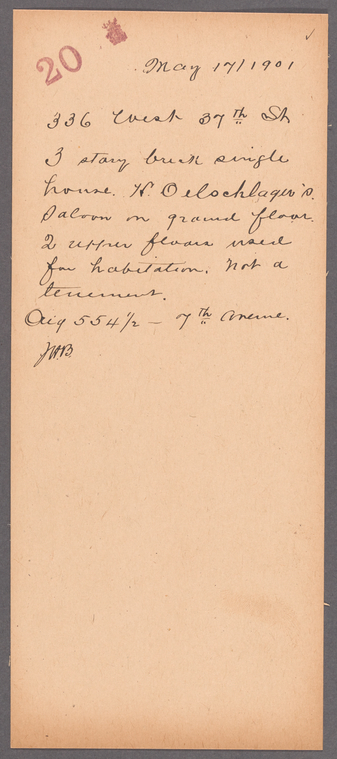 20
May 17/1901
336 West 37th St
3 story brick single
house. H. Oelschlager's.
Saloon on ground floor.
2 upper floors used
for habitation. Not a
tenement.
554 1/2 — 7th Avenue.